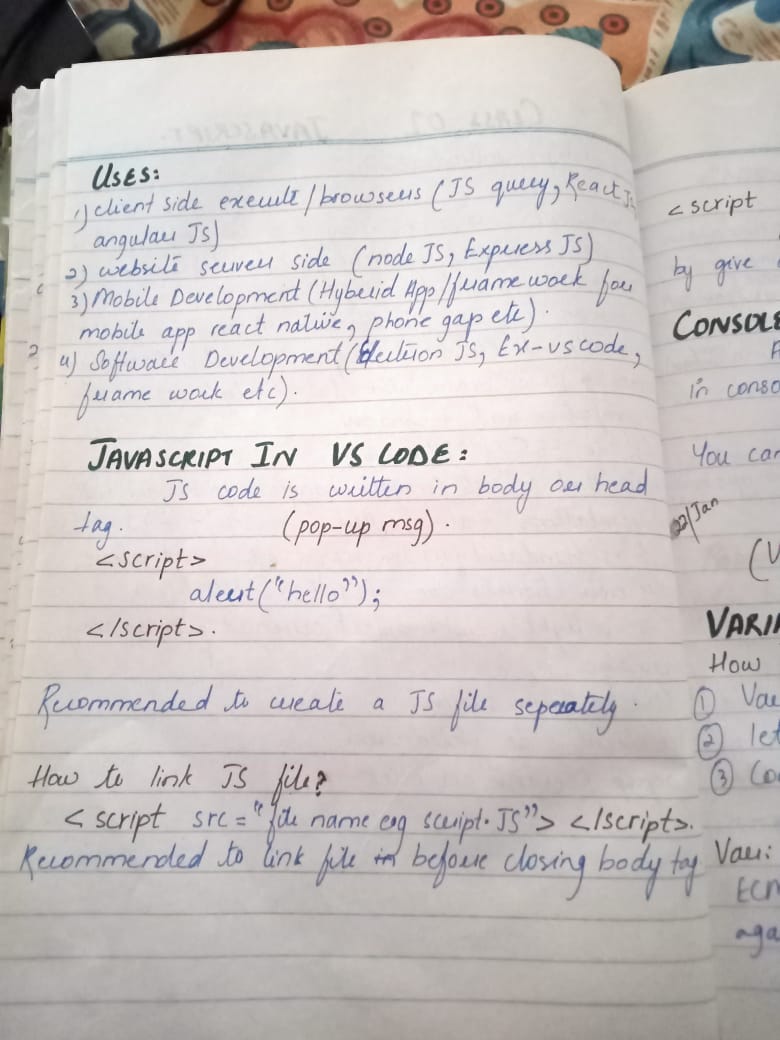 USES:
1) client side execute / browsers ( JS query, React Js,
angular Js)
2) website server side (node JS, Express JS)
3) Mobile Development (Hyberid App / frame work for
mobile app react native, phone gap etc).
4) Software Development (Electron JS, Ex-vs code,
frame work etc).
JAVASCRIPT IN VS CODE:
JS code is written in body or head
tag. (pop-up msg).
<script>
alert("hello");
</script>.
Recommended to create a JS file seperately.
How to link JS file?
< script src = "file name eg script.JS"> </script>.
Recommended to link file in before closing body tag
< script
by give
CONSOLE
in conso
You can
22/Jan
VARIA
How
① Var
② let
③ Co
Var:
ECM
aga